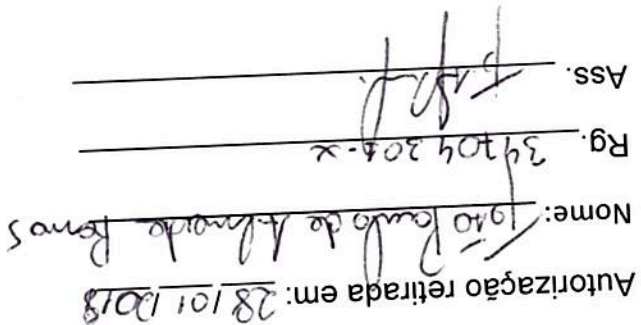 Autorização retirada em: 28/01/2018
Nome: João Paulo de Almeida Ramos
Rg. 34704304-x
Ass.